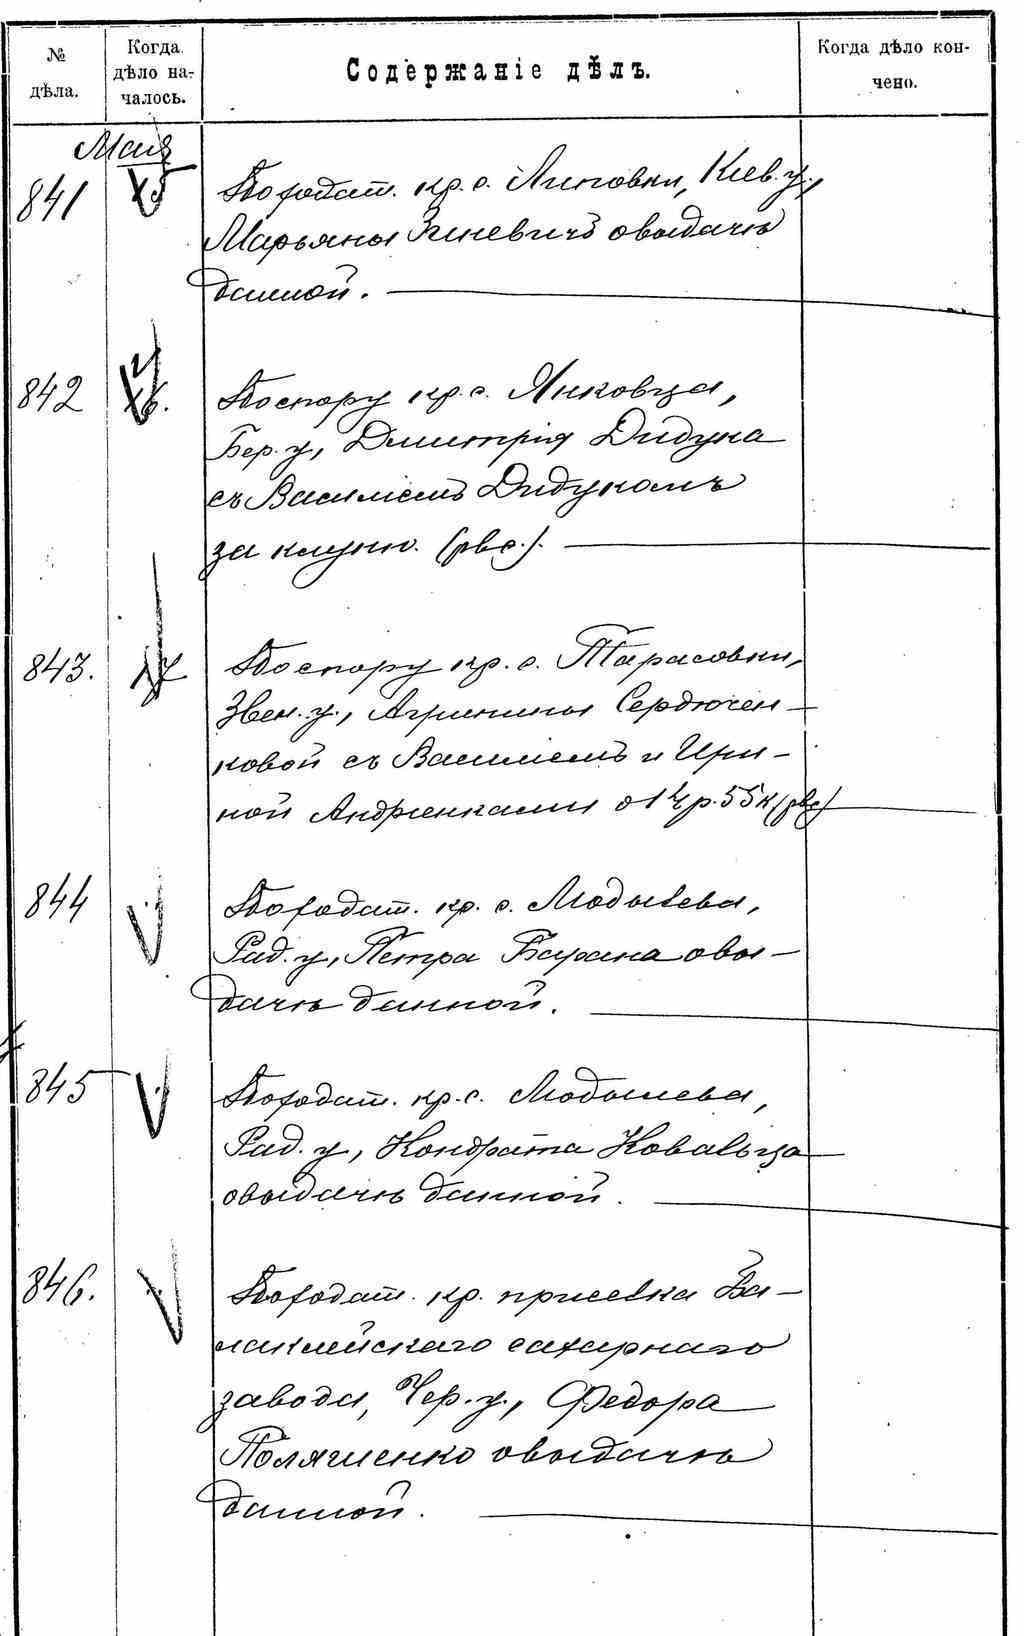 № дѣла.
Когда дѣло на-
чалось.
Содержаніе дѣлъ.
Когда дѣло кон-
чено.
Мая
841
По ходат. кр. с. Липовки, Кіев. у.,
Марьяны Зиневичъ о выдачѣ
данной.
842
По спору кр. с. Янковца,
Бер. у., Дмитрія Дидука
съ Василіемъ Дидукомъ
за клуню. (рвс.).
843.
По спору кр. с. Тарасовки,
Звен. у., Агрипины Сердючен-
ковой съ Василіемъ и Ири-
ной Андріенками о 14 р. 55 к (рвс)
844
По ходат. кр. с. Модылева,
Рад. у., Петра Барана о вы-
дачѣ данной.
845
По ходат. кр. с. Модылева,
Рад. у., Кондрата Ковальца
о выдачѣ данной.
846.
По ходат. кр. приселка Ба-
лаклейскаго сахарнаго
завода, Чер. у., Федора
о выдачѣ
данной.